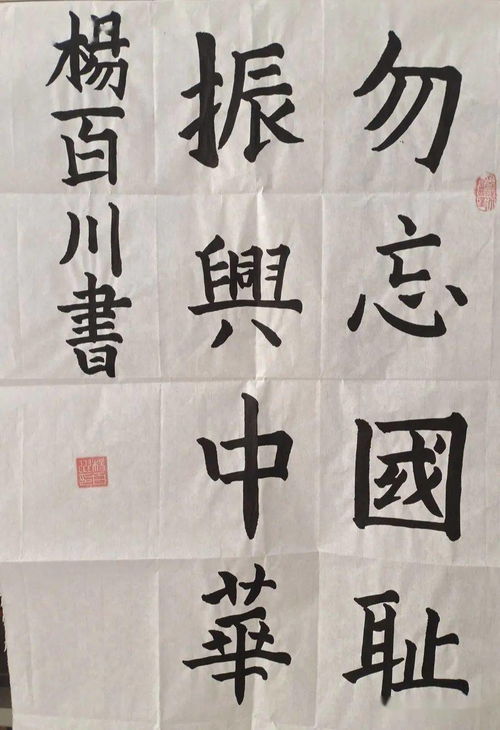 勿忘國耻
振興中華
楊百川書